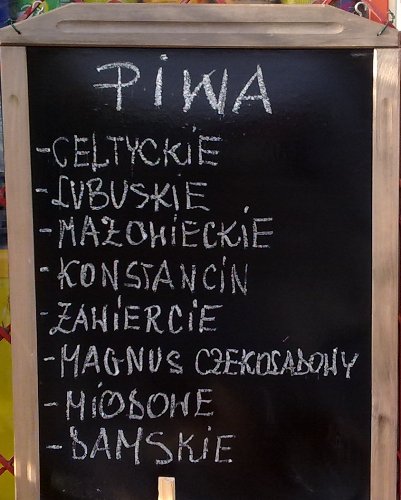 PIWA
-CELTYCKIE
-LUBUSKIE
-MAZOWIECKIE
-KONSTANCIN
-ZAWIERCIE
-MAGNUS CZEKOLADOWY
-MIODOWE
-DAMSKIE